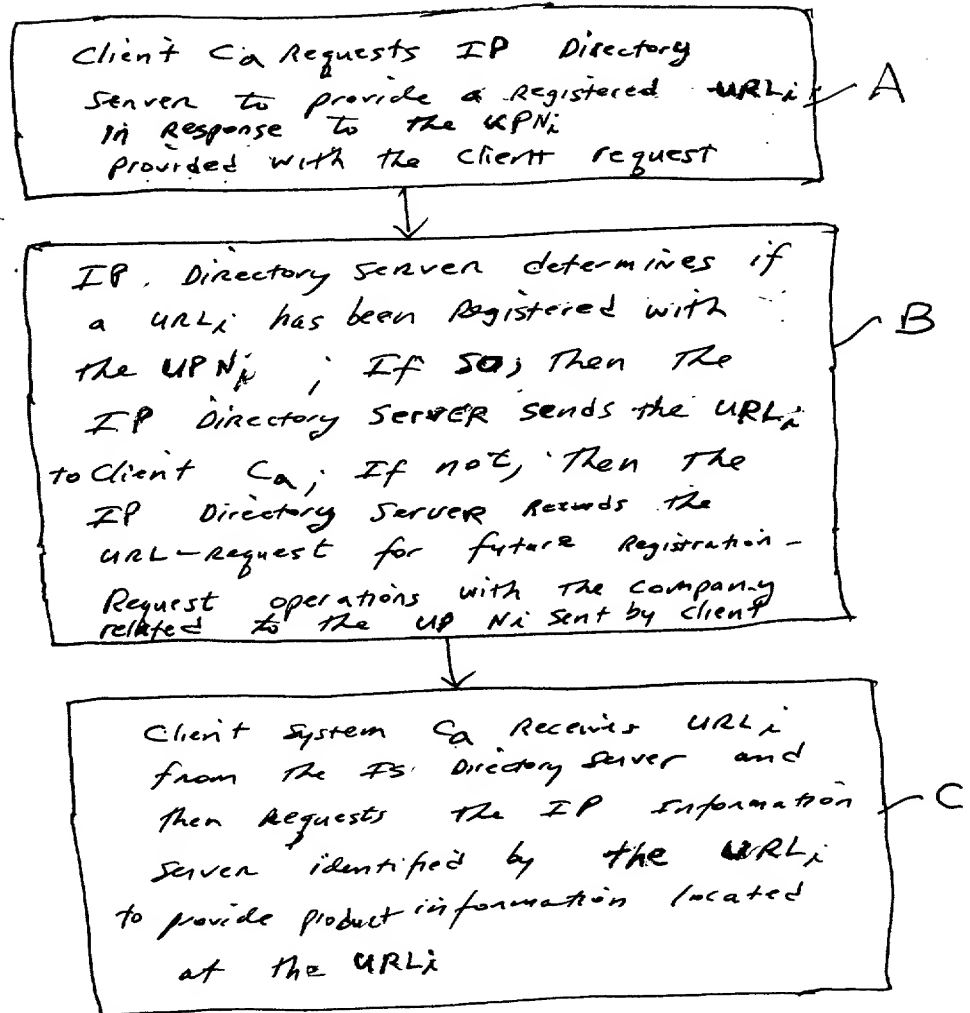 Client Ca Requests IP Directory
Server to provide a Registered URLi
A
in Response to the UPNi
provided with the client request
IP. Directory Server determines if
a URLi has been Registered with
B
the UPNi ; If so; Then the
IP Directory Server sends the URLi
to Client Ca; If not, Then the
IP Directory Server Records the
URL-Request for future Registration-
Request operations with The company
related to the UPNi sent by client
Client System Ca Receives URLi
from the IS. Directory Server and
then Requests the IP Information
C
Server identified by the URLi
to provide product information located
at the URLi